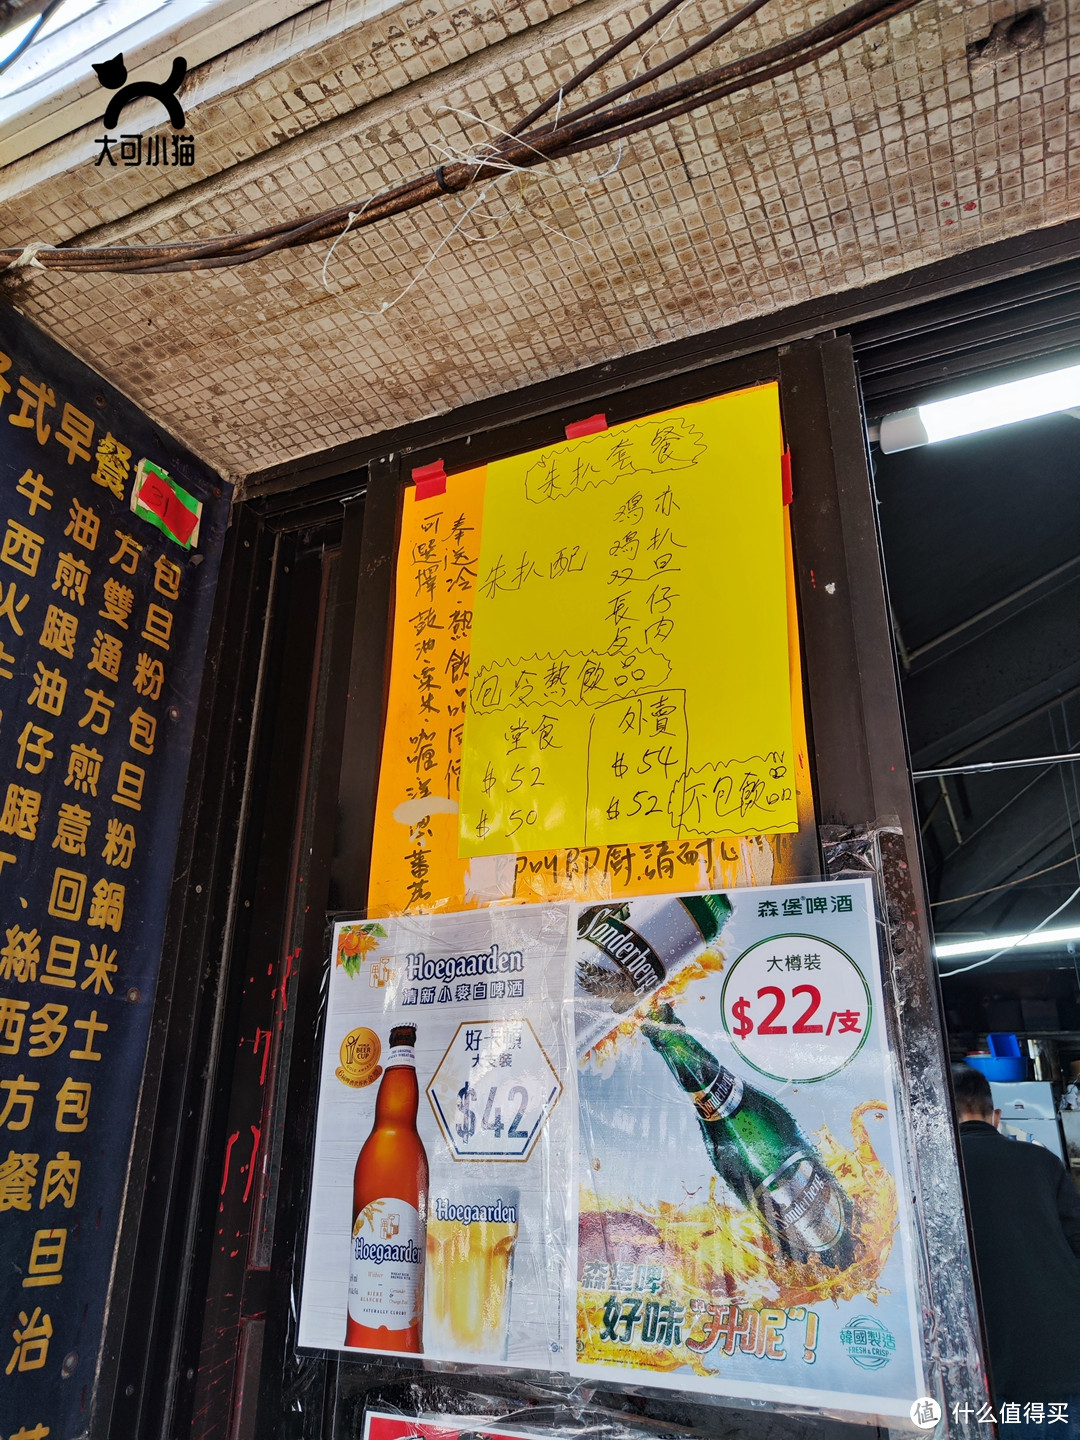 大可小猫
式早餐
31
牛油方包
西煎雙旦
火腿通粉
牛油方包
仔煎旦
腿意粉
丁、回鍋
絲旦米
西多士
方包
餐肉
旦
治
朱扒套餐
朱扒配
鸡亦
鸡扒
双旦
長仔
肉
包冷熱飲品
堂食
$52
$50
外賣
$54
$52
不包飲品
奉送冷.熱飲品
可選擇 鼓油.粟米.咖喱
即叫即廚.請耐心
Hoegaarden
清新小麥白啤酒
好卡頓
大支裝
$42
Hoegaarden
Hoegaarden
BIÈRE BLANCHE
NATURALLY CLOUDY
Sonderberg
森堡啤酒
大樽裝
$22/支
森堡啤
好味"升呢"!
韓國製造
FRESH & CRISP
值 什么值得买